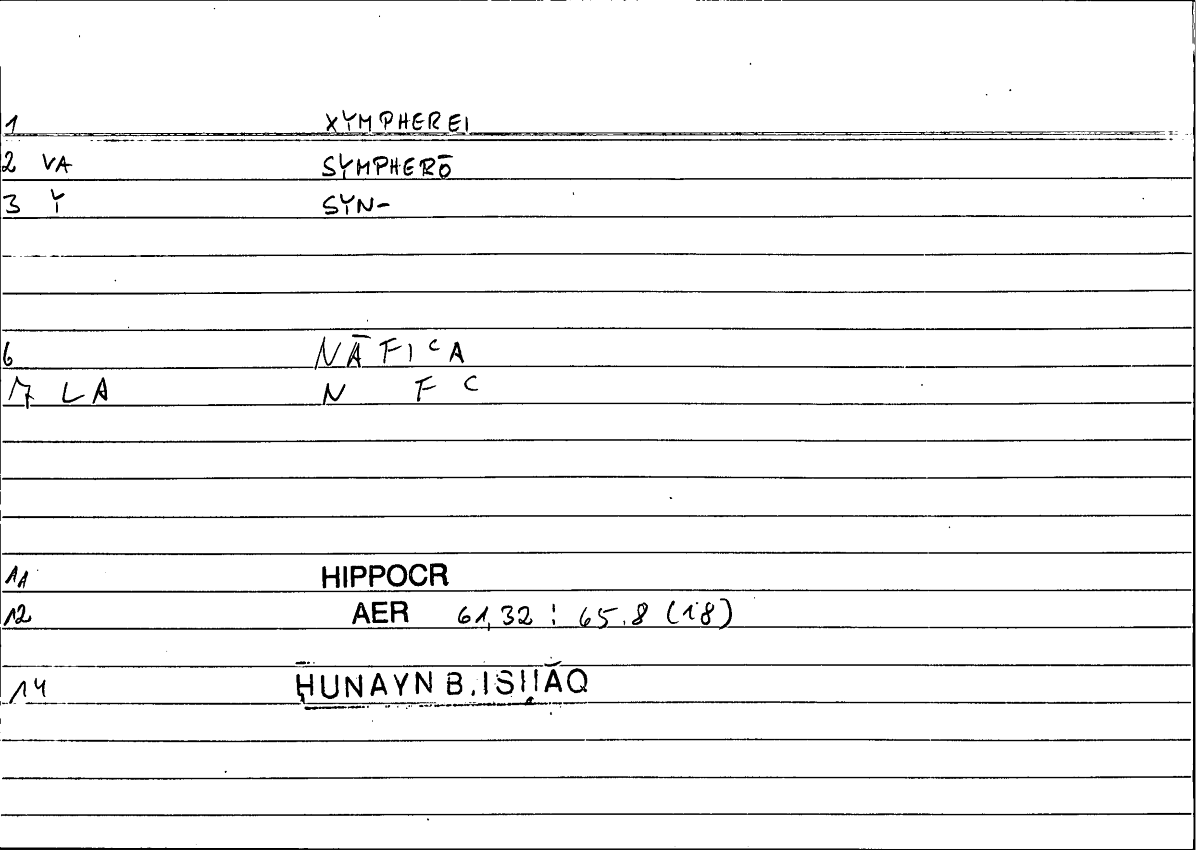 1 XYMPHEREI
2 VA SYMPHERŌ
3 Y SYN-
6 NĀFIᶜA
7 LA N F ᶜ
11 HIPPOCR
12 AER 61,32 : 65.8 (18)
14 ḤUNAYN B. ISḤĀQ